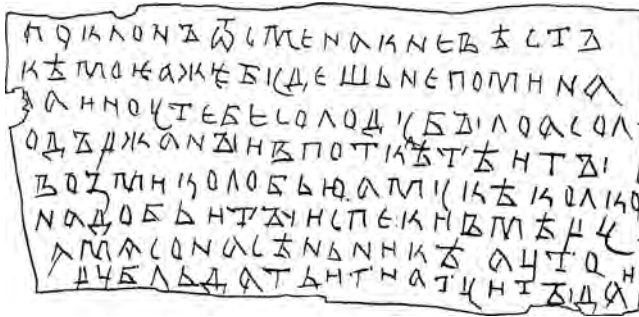 ПОКЛОНЪѾСМЕНАКНЕВѢСТЪ
КѢМОѤАЖѤБУДЕШЬНЕПОМИНА
ЛАИНОУТЕБЕСОЛОДУБЪІЛОАСОЛ
ОДЪРЖАНЪІИВПОТКѢТѢИТЪІ
ВОZМИКОЛОБЬЮАМУКѢКОЛКО
НАДОБЬИТЪІИСПЕКИВМѢРУ
АМАСОНАСѢНЬНИКѢАЦТО
РУБЛЬДАТЬИГНАТУИТЪІДАИ